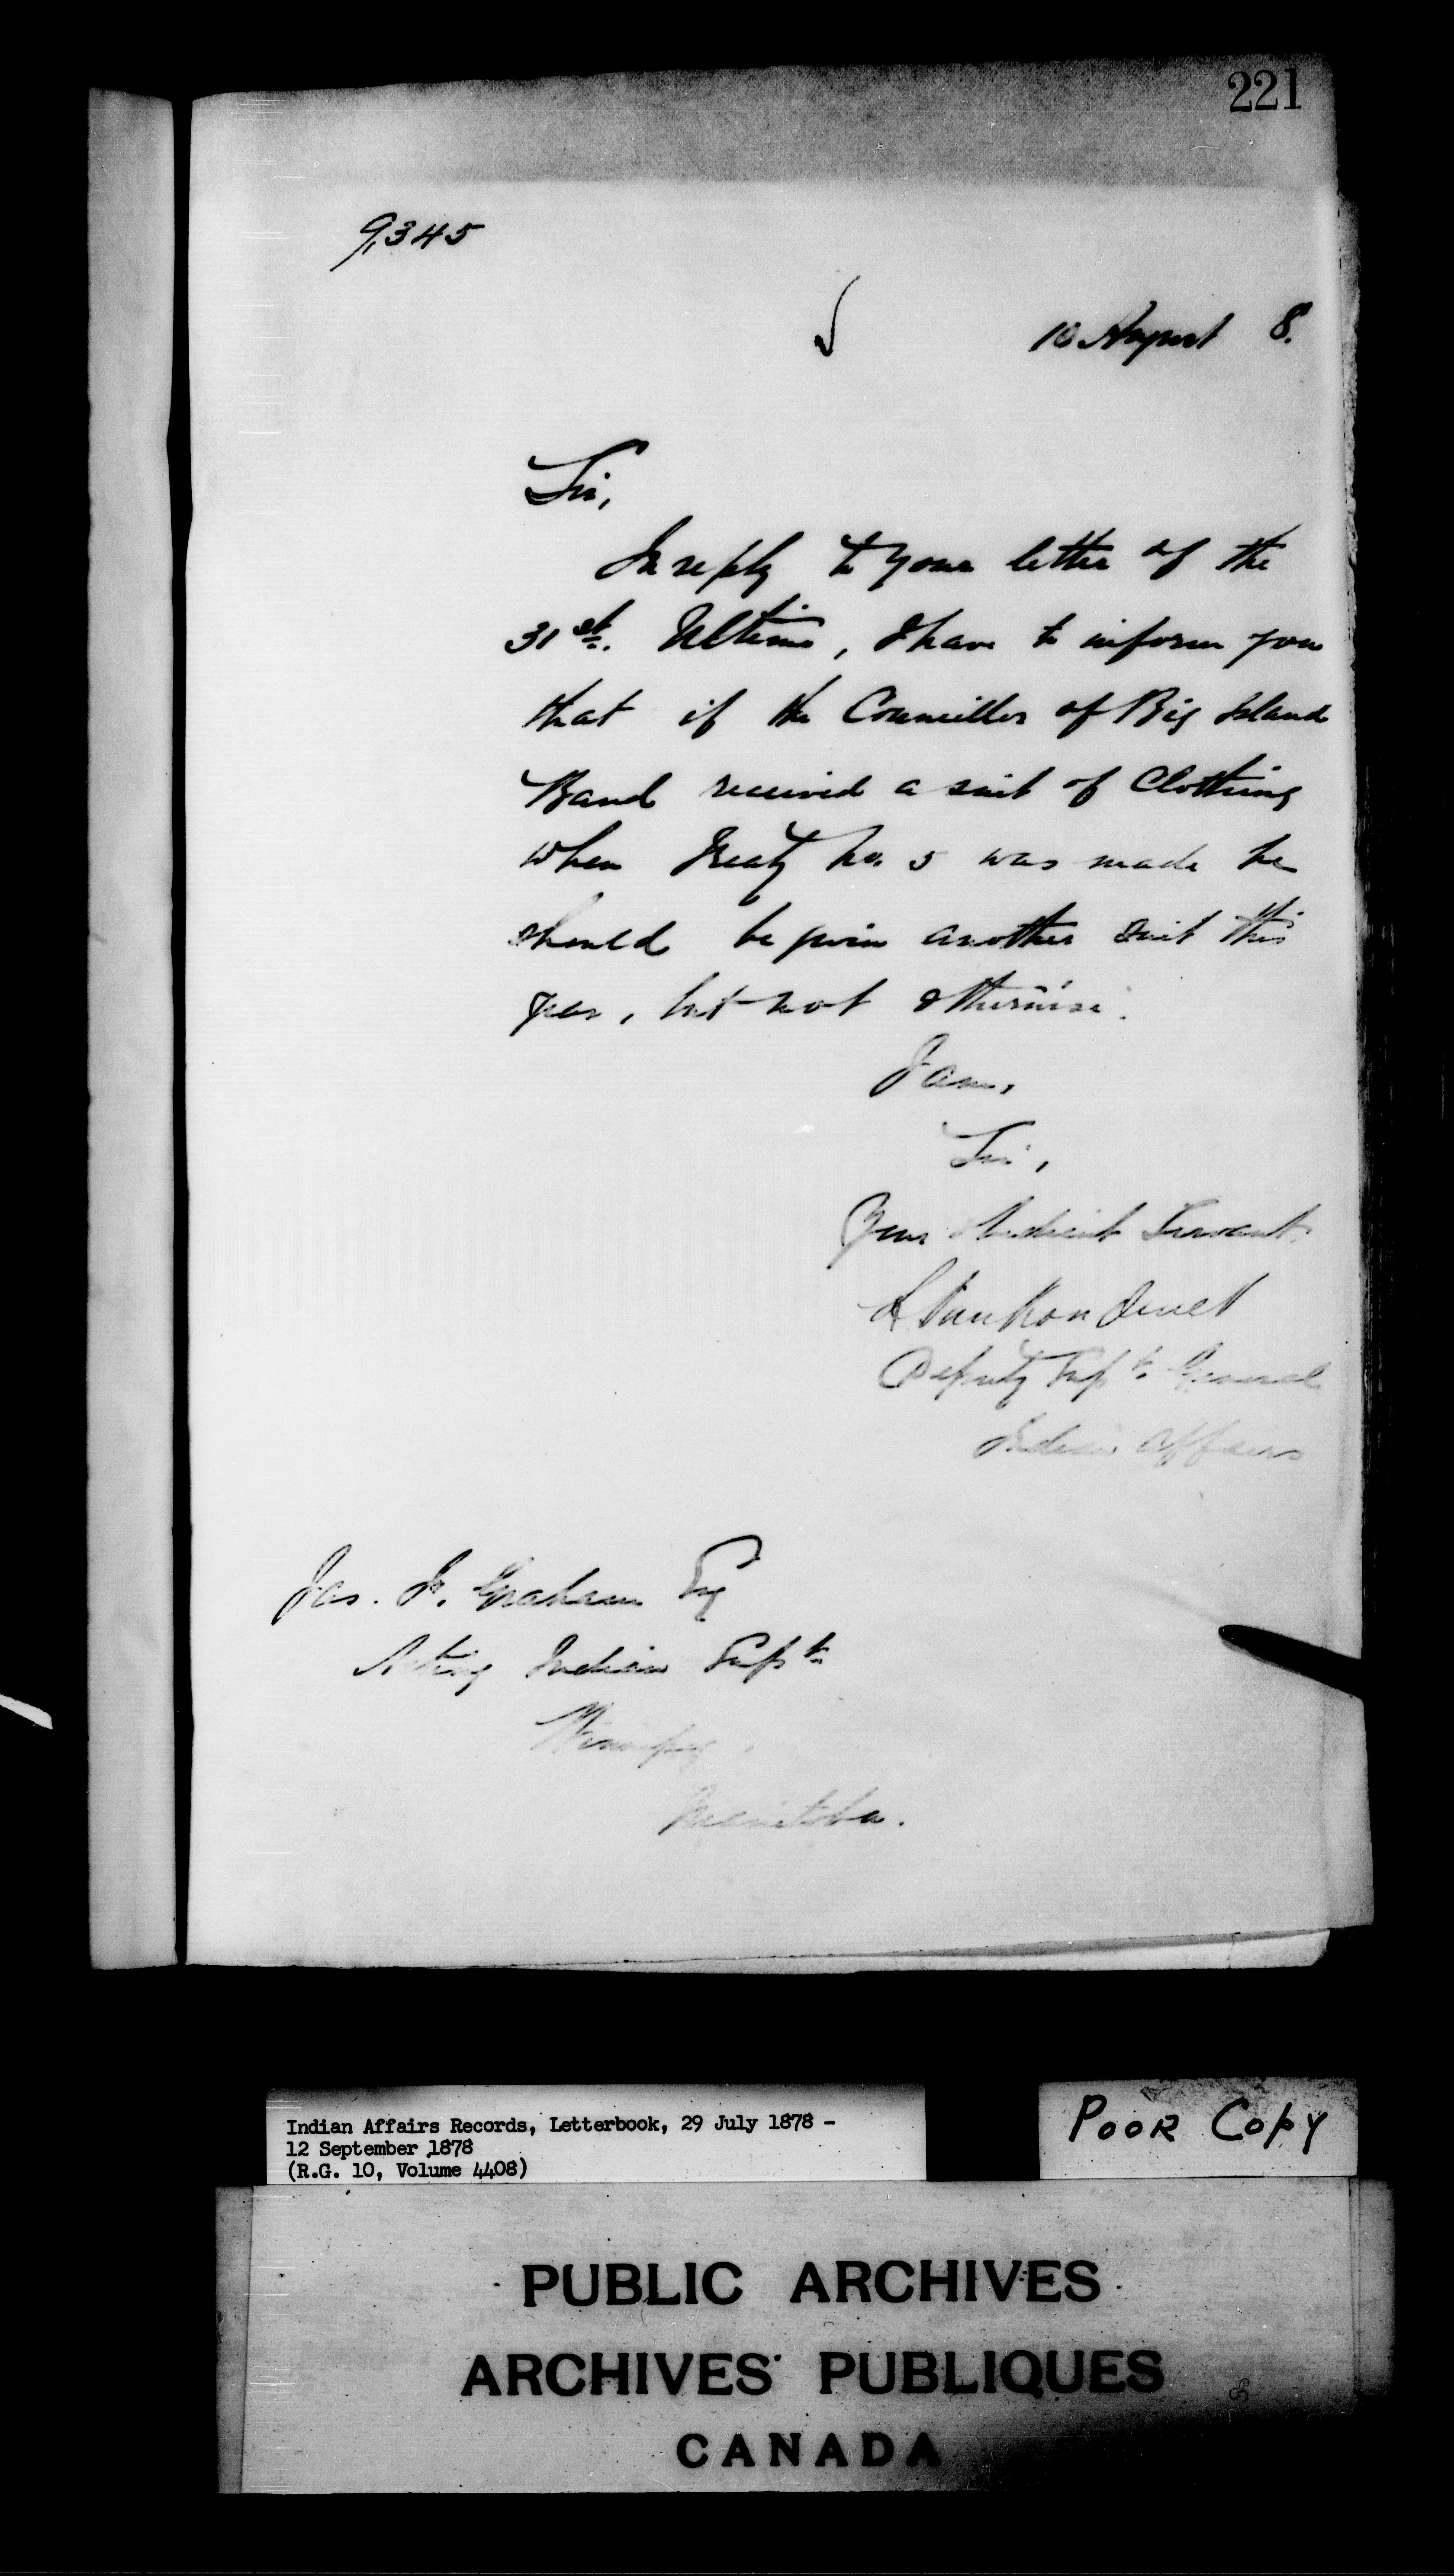 221
9,345
10 August 8.
Sir,
In reply to your letter of the
31st. Ultimo, I have to inform you
that if the Councillor of Big Island
Band received a suit of Clothing
when Treaty No. 5 was made he
should be given another suit this
year, but not otherwise.
I am,
Sir,
Your obedient Servant.
L Vankoughnet
Deputy Supt. General
Indian Affairs
Jas. F. Graham Esq
Acting Indian Supt.
Winnipeg,
Manitoba.
Indian Affairs Records, Letterbook, 29 July 1878 -
12 September 1878
(R.G. 10, Volume 4408)
POOR COPY
PUBLIC ARCHIVES
ARCHIVES PUBLIQUES
CANADA